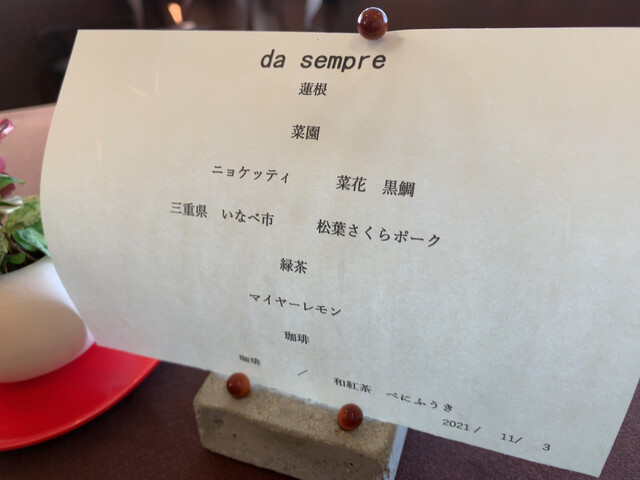 da sempre
蓮根
菜園
ニョケッティ 菜花 黒鯛
三重県 いなべ市 松葉さくらポーク
緑茶
マイヤーレモン
珈琲
珈琲 / 和紅茶 べにふうき
2021/ 11/ 3